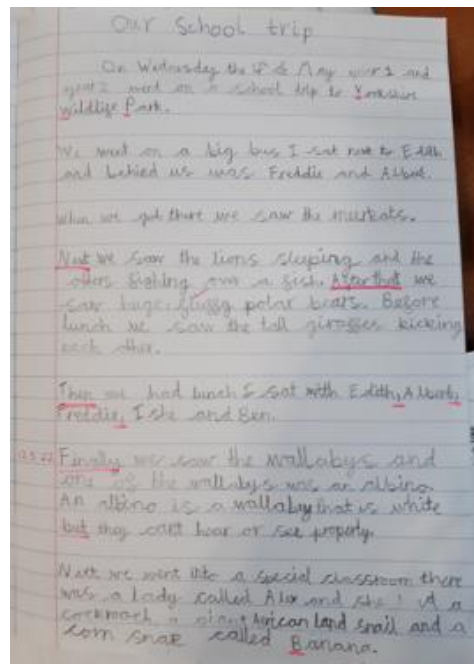 Our School trip
On Wednesday the May year 1 and
year 2 went on a school trip to Yorkshire
Wildlife Park.
We went on a big bus I sat next to Edith
and behied us was Freddie and Albert.
When we got there we saw the murkats.
Next we saw the lions sleeping and the
otters fighting over a fish. After that we
saw huge fluffy polar bears. Before
lunch we saw the tall giraffes kicking
each other.
Then we had lunch I sat with Edith, Albert,
Freddie, and Ben.
Finally we saw the wallabys and
one of the wallabys was an albino.
An albino is a wallaby that is white
but they cant hear or see properly.
Next we went into a special classroom there
was a lady called Alex and she a
cockroach, a giant African land snail and a
corn snake called Banana.